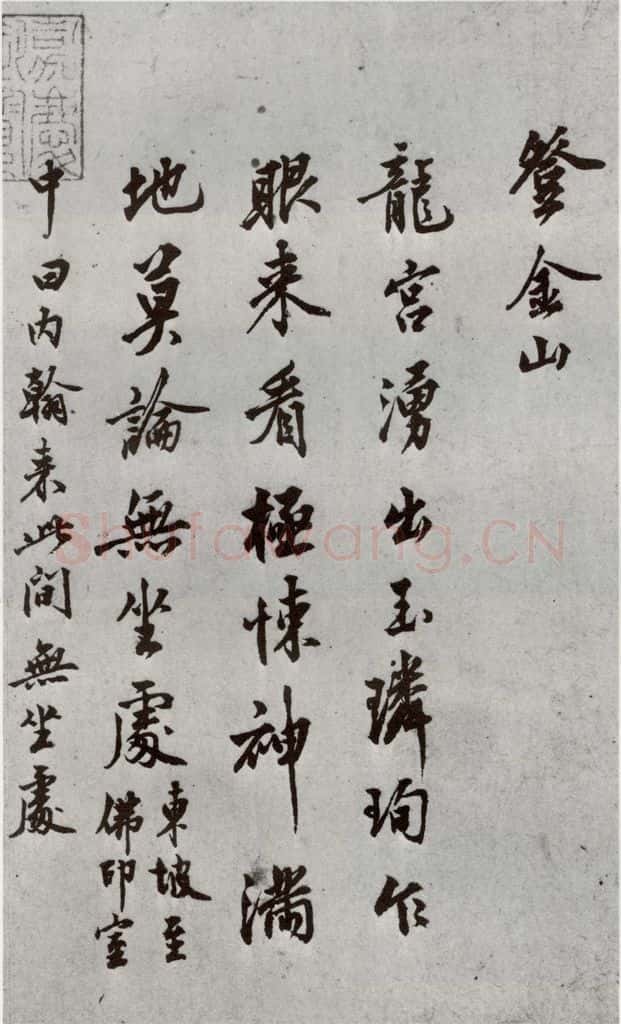 登金山
龍宮湧出玉璘珣乍
眼来看極悚神滿
地莫論無坐處東坡至
佛印室
中曰内翰来此間無坐處
Shufawang.CN